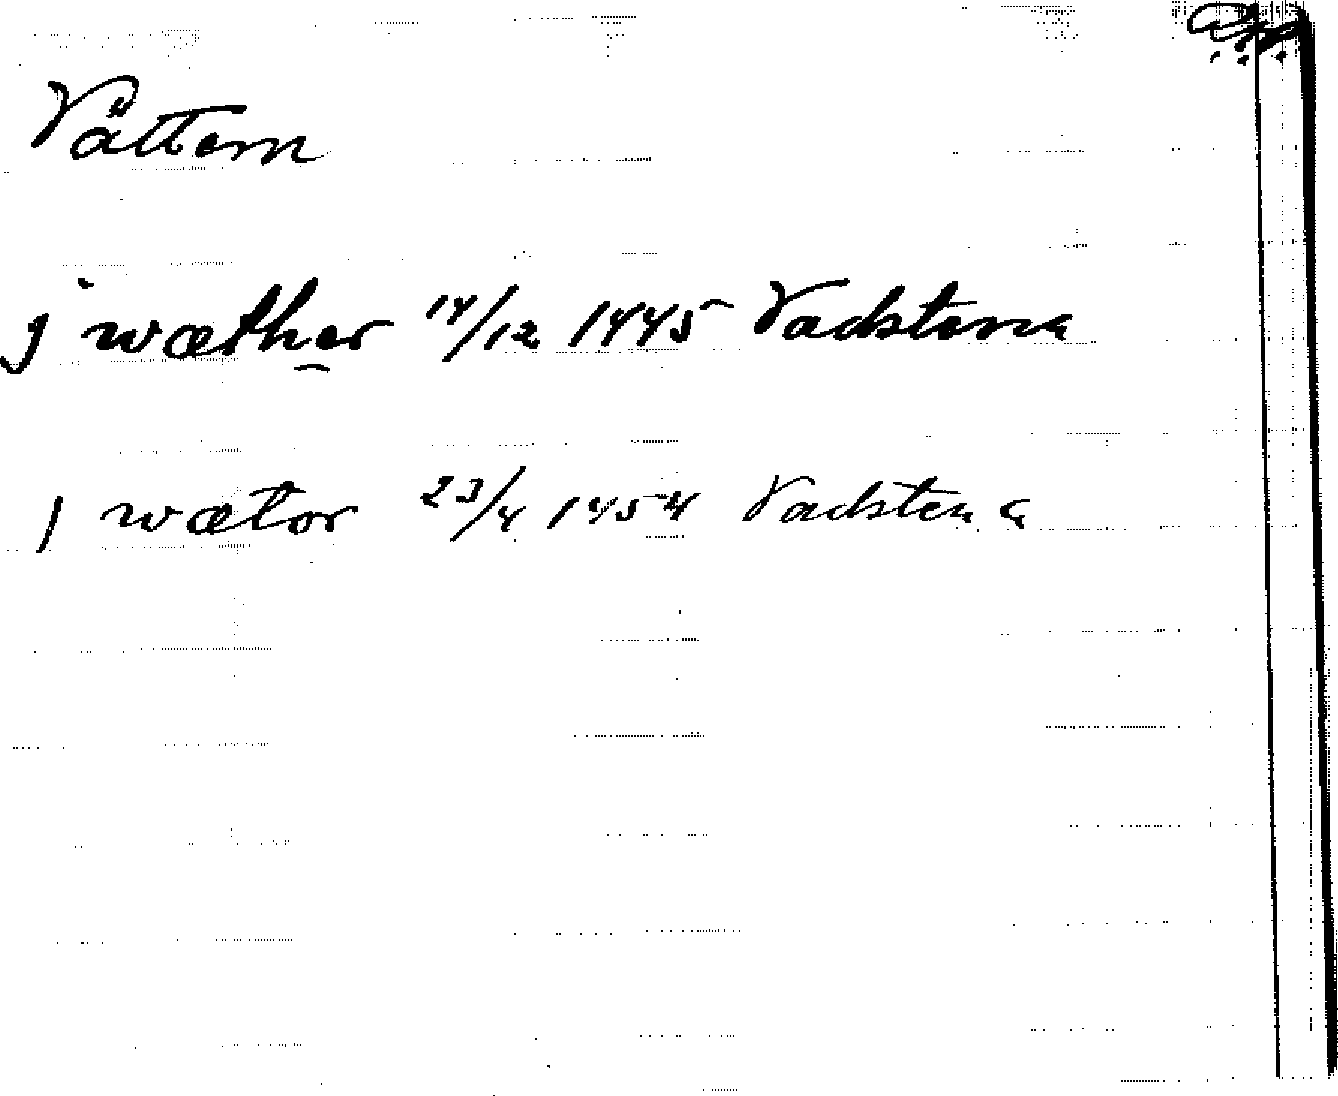 Vättern
j wæther 14/12 1445 Vadstena
j wætor 23/4 1454 Vadstena